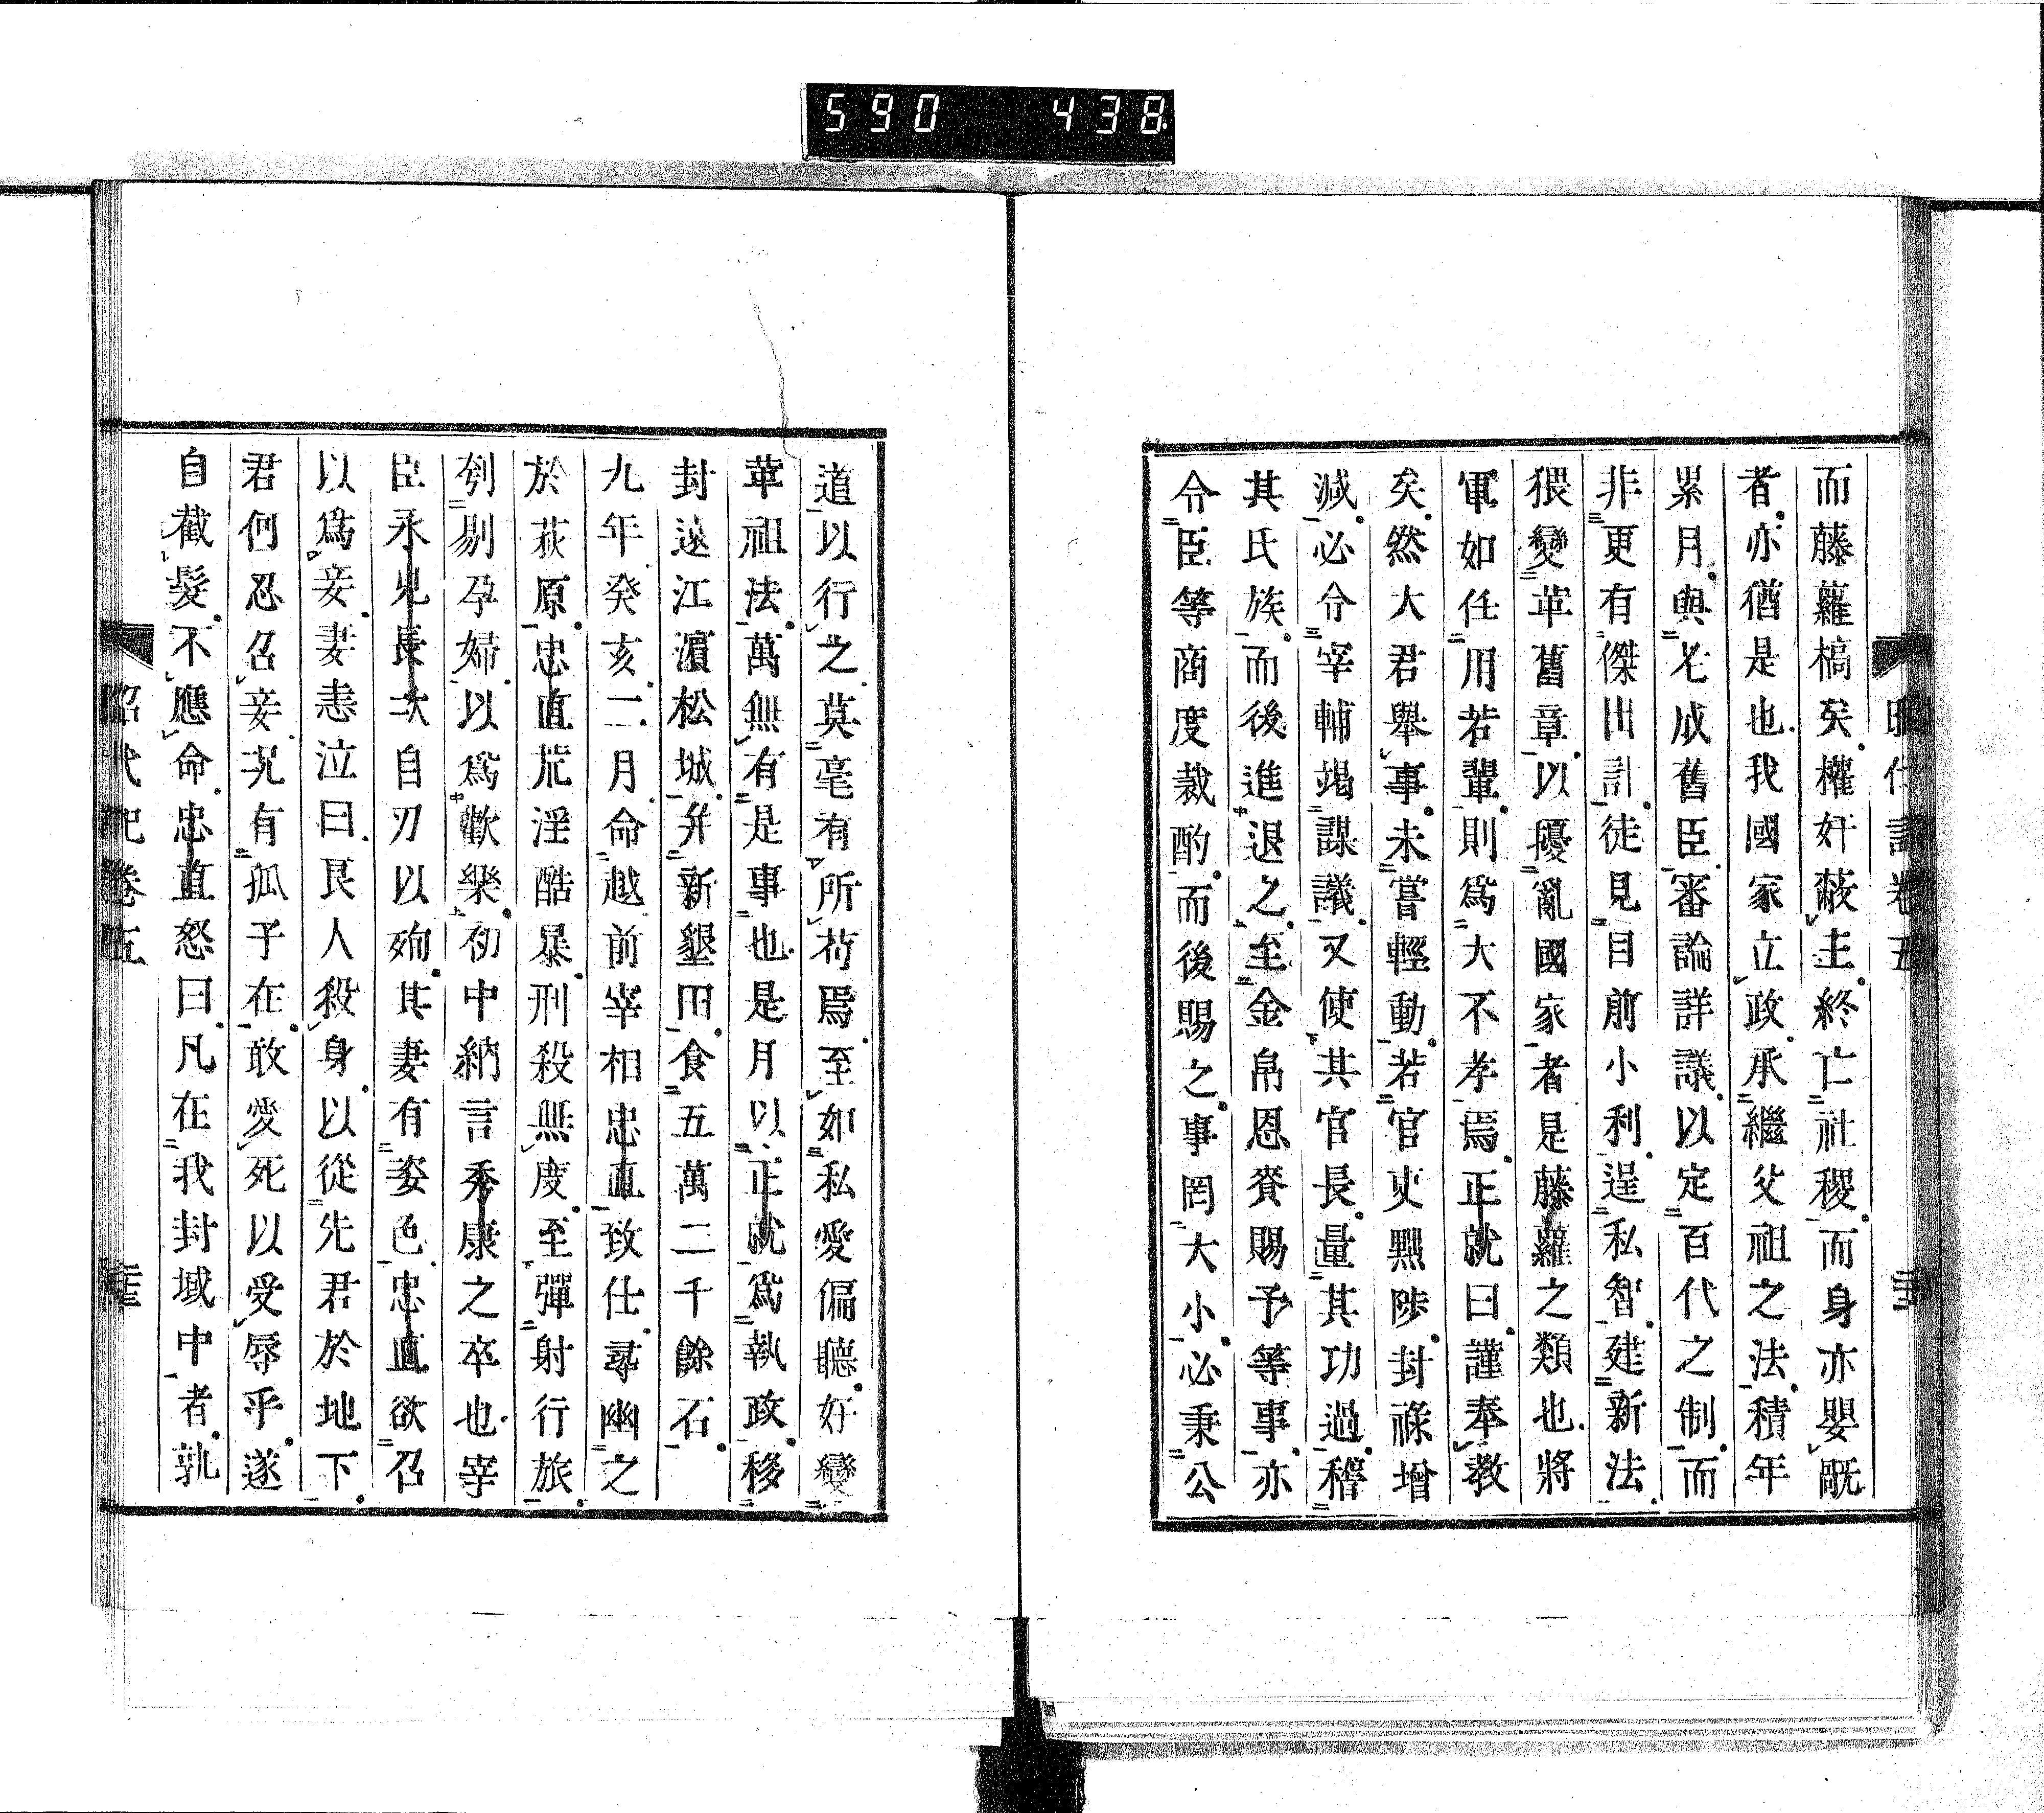 590 438
而藤蘿槁矣權奸蔽主終亡社稷而身亦嬰厰
者亦猶是也我國家立政承繼父祖之法積年
累月與老成舊臣審論詳議以定百代之制而
非更有傑出計徒見目前小利逞私智建新法
猥變革舊章以擾亂國家者是藤蘿之類也將
軍如任用若輩則爲大不孝焉正就曰謹奉教
矣然大君舉事未嘗輕動若官吏黜陟封祿增
減必令宰輔竭謀議又使其官長量其功過稽
其氏族而後進退之至金帛恩賚賜予等事亦
令臣等商度裁酌而後賜之事罔大小必秉公
道以行之莫毫有所苟焉至如私愛偏聽好變
革祖法萬無有是事也是月以正就爲執政移
封遠江濵松城幷新墾田食五萬二千餘石
九年癸亥二月命越前宰相忠直致仕尋幽之
於萩原忠直荒淫酷暴刑殺無度至彈射行旅
刳剔孕婦以爲歡樂初中納言秀康之卒也宰
臣永見長次自刃以殉其妻有姿色忠直欲召
以爲妾妻恚泣曰良人殺身以從先君於地下
君何忍召妾况有孤子在敢愛死以受辱乎遂
自截髮不應命忠直怒曰凡在我封域中者孰
昭代記卷五